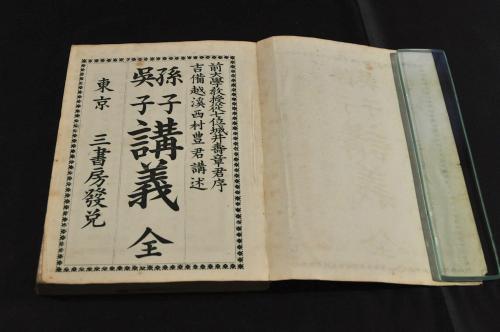 前大學敎授從七位城井壽章君序
吉備越溪西村豊君講述
孫子
吳子
講義 全
東京 三書房發兌